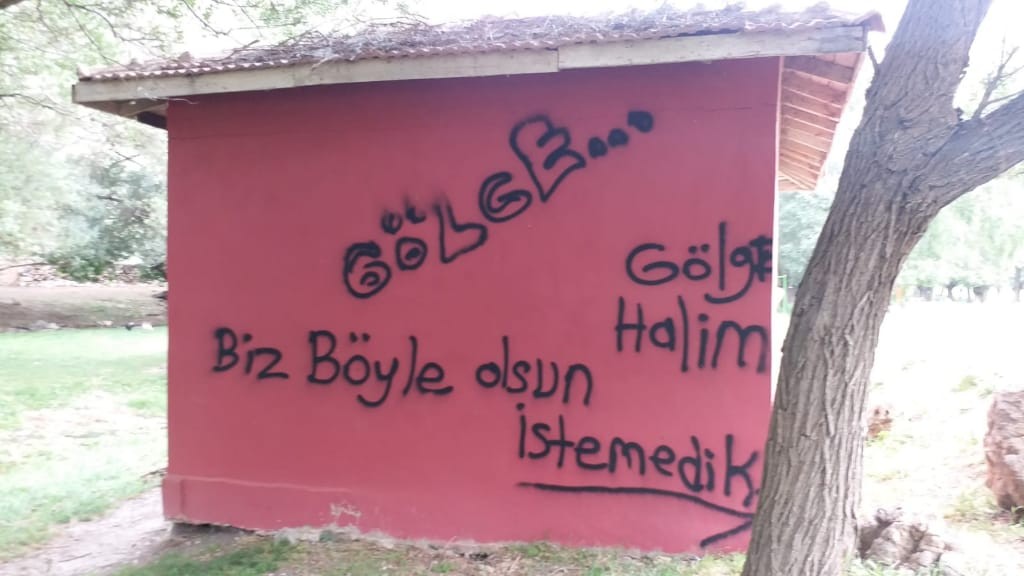 GÖLGE...
Gölge
Halim
Biz Böyle olsun
istemedik